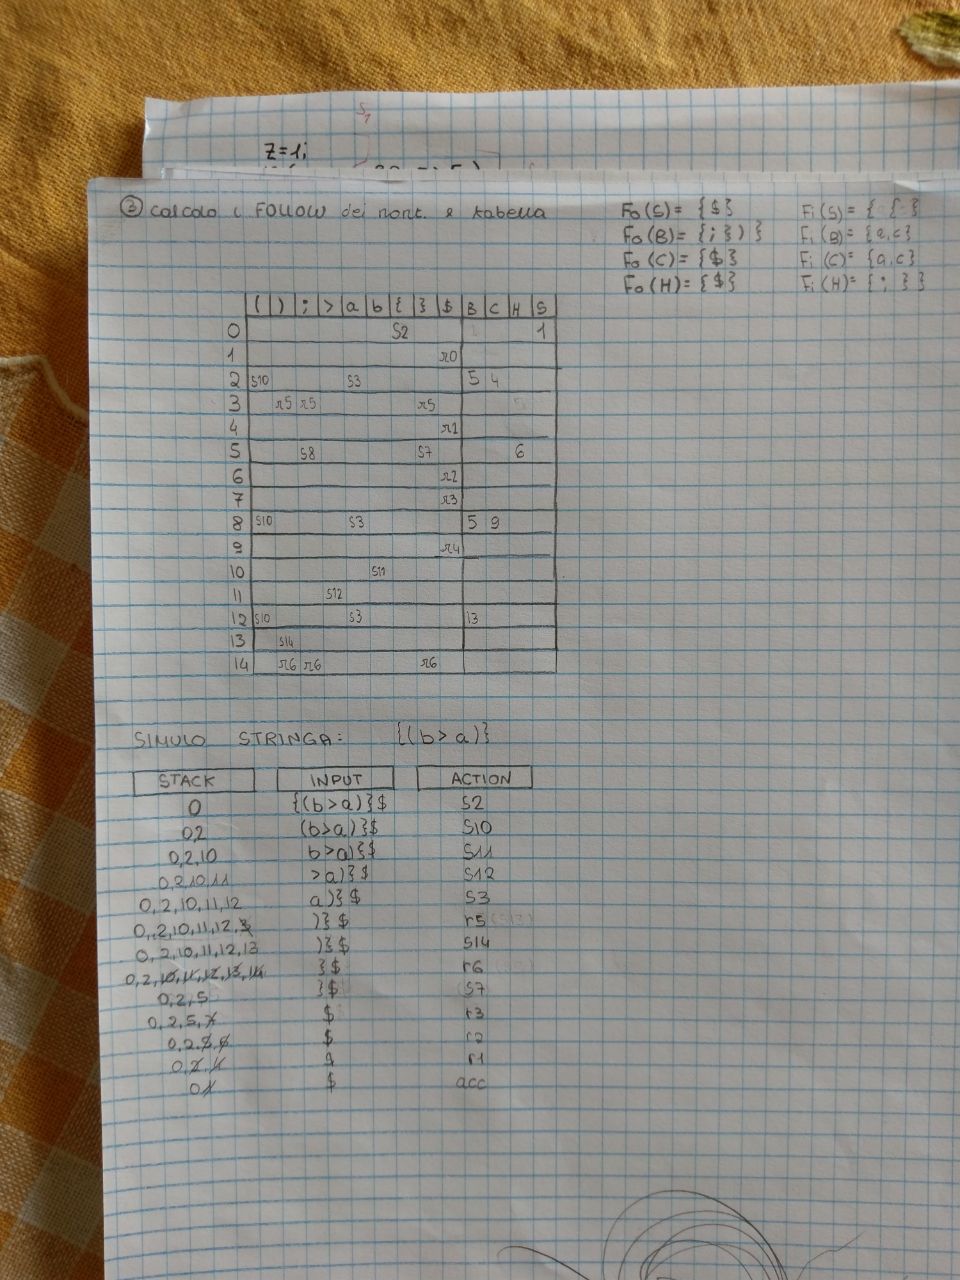 S1
Z=1;
② calcolo i FOLLOW dei nont. e tabella
Fo(S)= {$} Fi(S)= { { }
Fo(B)= {; } ) } Fi(B)= {a,c}
Fo(C)= {$} Fi(C)= {a,c}
Fo(H)= {$} Fi(H)= {; } }
( ) ; > a b { } $ B C H S
0 S2 1
1 r0
2 S10 S3 5 4
3 r5 r5 r5
4 r1
5 S8 S7 6
6 r2
7 r3
8 S10 S3 5 9
9 r4
10 S11
11 S12
12 S10 S3 13
13 S14
14 r6 r6 r6
SIMULO STRINGA: {(b>a)}
STACK INPUT ACTION
0 {(b>a)}$ S2
0,2 (b>a)}$ S10
0,2,10 b>a)}$ S11
0,2,10,11 >a)}$ S12
0,2,10,11,12 a)}$ S3
0,2,10,11,12,3 )}$ r5
0,2,10,11,12,13 )}$ S14
0,2,10,11,12,13,14 }$ r6
0,2,5 }$ S7
0,2,5,7 $ r3
0,2,5,6 $ r2
0,2,4 $ r1
0,1 $ acc